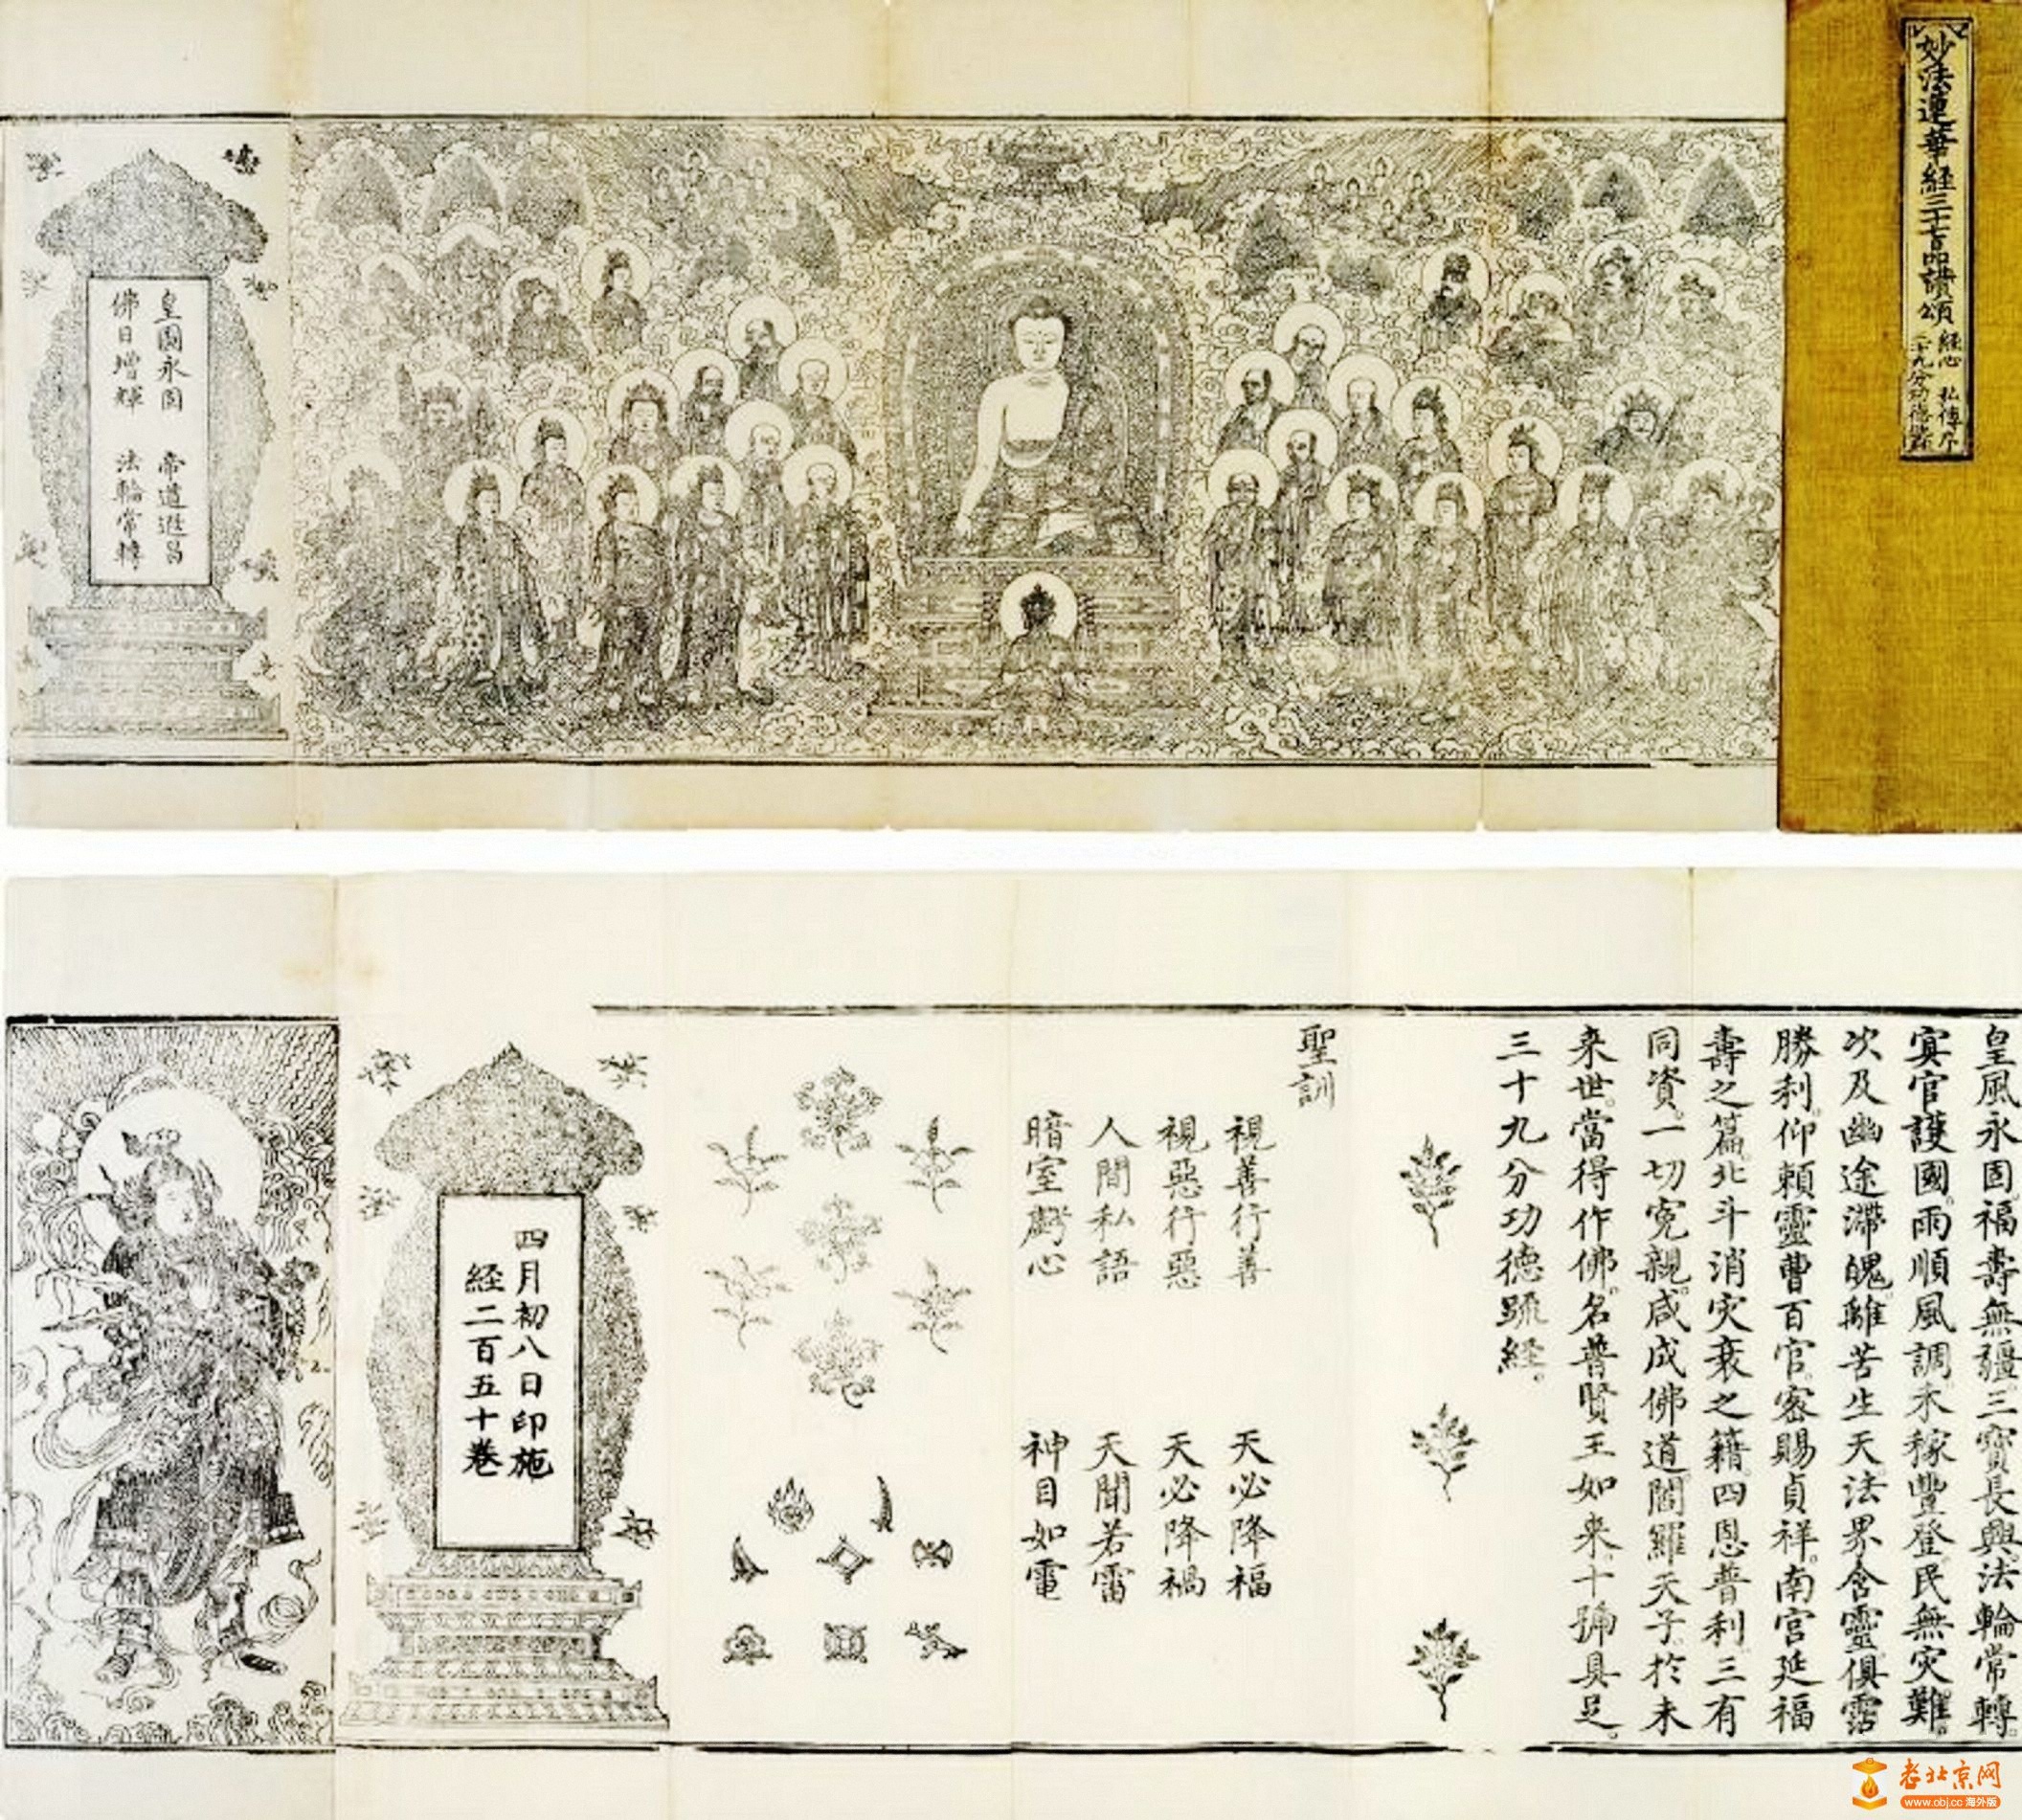 妙法蓮華経三十七品讃頌
経心 私傳序
二十九分功德疏
皇圖永固 帝道遐昌
佛日增輝 法輪常轉
皇風永固。福壽無疆。三寶長興。法輪常轉。
寔官護國。雨順風調。禾稼豐登。民無灾難。
次及幽途滯魄。離苦生天。法界含靈。俱霑
勝利。仰賴靈曹百官。密賜貞祥。南宮延福
壽之篇。北斗消灾衰之籍。四恩普利。三有
同資。一切寃親。咸成佛道。閻羅天子。於未
来世。當得作佛。名普賢王如来。十號具足。
三十九分功德䟽経。
聖訓
視善行善 天必降福
視惡行惡 天必降禍
人間私語 天聞若雷
暗室虧心 神目如電
四月初八日印施
経二百五十卷
老北京网
www.obj.cc 海外版